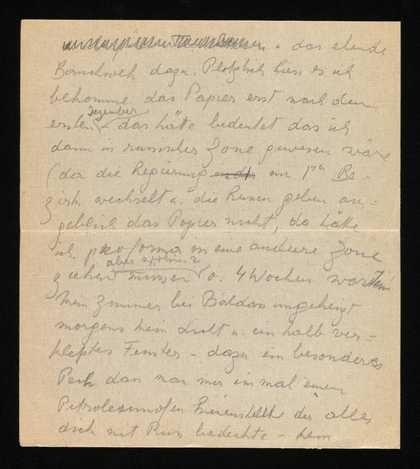 u. das elende
dazu. Plötzlich hiess es ich
bekomme das Papier erst nach dem
ersten Dezember u. das hätte bedeutet das ich
dann in russischer Zone gewesen wäre
(da die Regierung am 1ten Be-
zirk wechselt u. die Russen geben an-
geblich das Papier nicht, da hätte
ich pro forma in eine andere Zone
ziehen müssen u. 4 Wochen warten
Mein Zimmer bei ungeheizt
morgens kein Licht u. ein halb ver-
klebtes Fenster – dazu ein besonderes
Pech dass man mir einmal einen
Petroleumofen hineinstellte der alles
dick mit Russ bedeckte – kein